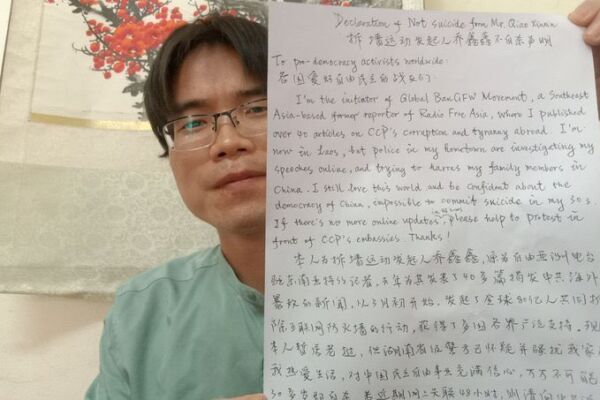 Declaration of Not suicide from Mr. Qiao Xinxin
拆墙运动发起人乔鑫鑫不自杀声明
To pro-democracy activists worldwide:
各国爱好自由民主的战友们:
I'm the initiator of Global BanGFW Movement, a Southeast
Asia-based former reporter of Radio Free Asia, where I published
over 40 articles on CCP's corruption and tyranny abroad. I'm
now in Laos, but police in my hometown are investigating my
speeches online, and trying to harres my family members in
China. I still love this world and be confident about the
democracy of China, impossible to commit suicide in my 30s.
If there's no more online updates, please help to protest in
front of CCP's embassies. Thanks!
本人为拆墙运动发起人乔鑫鑫，原为自由亚洲电台
驻东南亚特约记者，去年为其发表了40多篇揭发中共海外
暴政的新闻，从3月初开始，发起了全球80亿人共同拆
除互联网防火墙的行动，获得了多国各界广泛支持，现
本人暂居老挝，但湖南省警方已怀疑并骚扰我家
我热爱生活，对中国民主自由事业充满信心，万万不可能
30多岁即自杀，若近期网上失联48小时，则请向